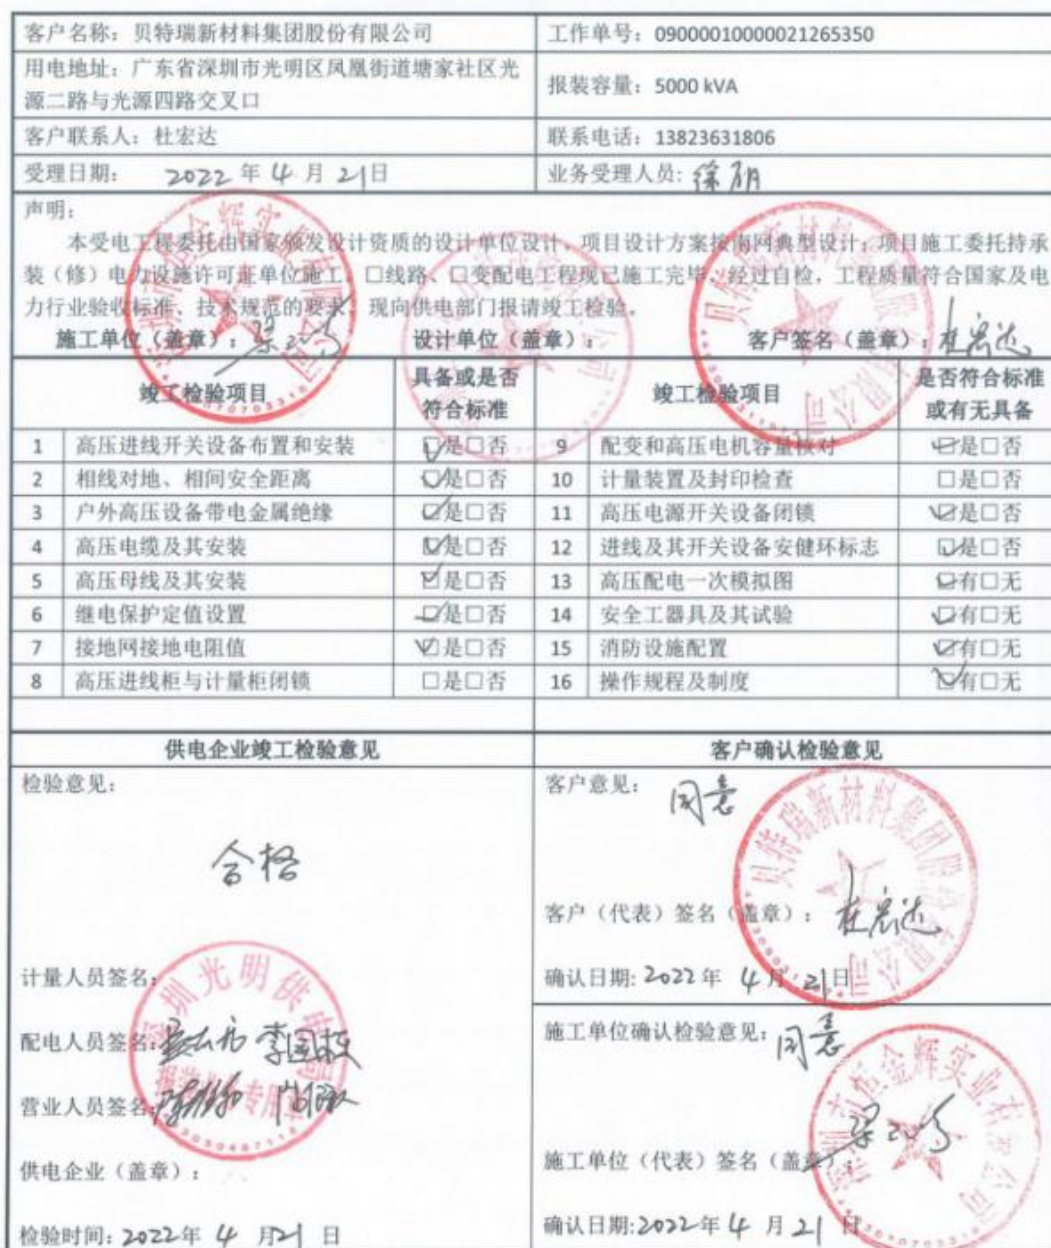 客户名称：贝特瑞新材料集团股份有限公司
工作单号：09000010000021265350
用电地址：广东省深圳市光明区凤凰街道塘家社区光
源二路与光源四路交叉口
报装容量：5000 kVA
客户联系人：杜宏达
联系电话：13823631806
受理日期： 2022 年 4 月 21 日
业务受理人员：
声明：
本受电工程委托由国家颁发设计资质的设计单位设计，项目设计方案按南网典型设计；项目施工委托持承
装（修）电力设施许可证单位施工。口线路、口变配电工程现已施工完毕，经过自检，工程质量符合国家及电
力行业验收标准、技术规范的要求，现向供电部门报请竣工检验。
施工单位（盖章）： 设计单位（盖章）： 客户签名（盖章）：杜宏达
竣工检验项目 具备或是否符合标准 竣工检验项目 是否符合标准或有无具备
1 高压进线开关设备布置和安装 ☑是□否 9 配变和高压电机容量核对 ☑是□否
2 相线对地、相间安全距离 ☑是□否 10 计量装置及封印检查 □是□否
3 户外高压设备带电金属绝缘 ☑是□否 11 高压电源开关设备闭锁 ☑是□否
4 高压电缆及其安装 ☑是□否 12 进线及其开关设备安健环标志 ☑是□否
5 高压母线及其安装 ☑是□否 13 高压配电一次模拟图 ☑有□无
6 继电保护定值设置 ☑是□否 14 安全工器具及其试验 ☑有□无
7 接地网接地电阻值 ☑是□否 15 消防设施配置 ☑有□无
8 高压进线柜与计量柜闭锁 □是□否 16 操作规程及制度 ☑有□无
供电企业竣工检验意见
客户确认检验意见
检验意见：
合格
计量人员签名：
配电人员签名： 李国栋
营业人员签名：
供电企业（盖章）：
检验时间：2022年 4 月21 日
客户意见： 同意
客户（代表）签名（盖章）： 杜宏达
确认日期：2022年 4 月 21日
施工单位确认检验意见： 同意
施工单位（代表）签名（盖章）：
确认日期：2022年 4 月 21 日
贝特瑞新材料集团股份有限公司
深圳光明供电局